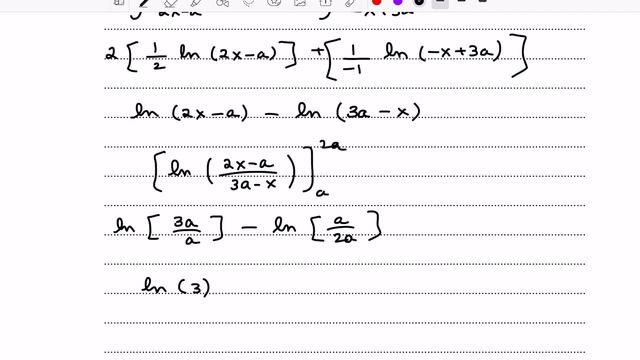 2 [ 1/2 ln (2x-a) ] + [ 1/-1 ln (-x+3a) ]
ln (2x-a) - ln (3a-x)
[ ln ( 2x-a / 3a-x ) ]_a^2a
ln [ 3a/a ] - ln [ a/2a ]
ln (3)